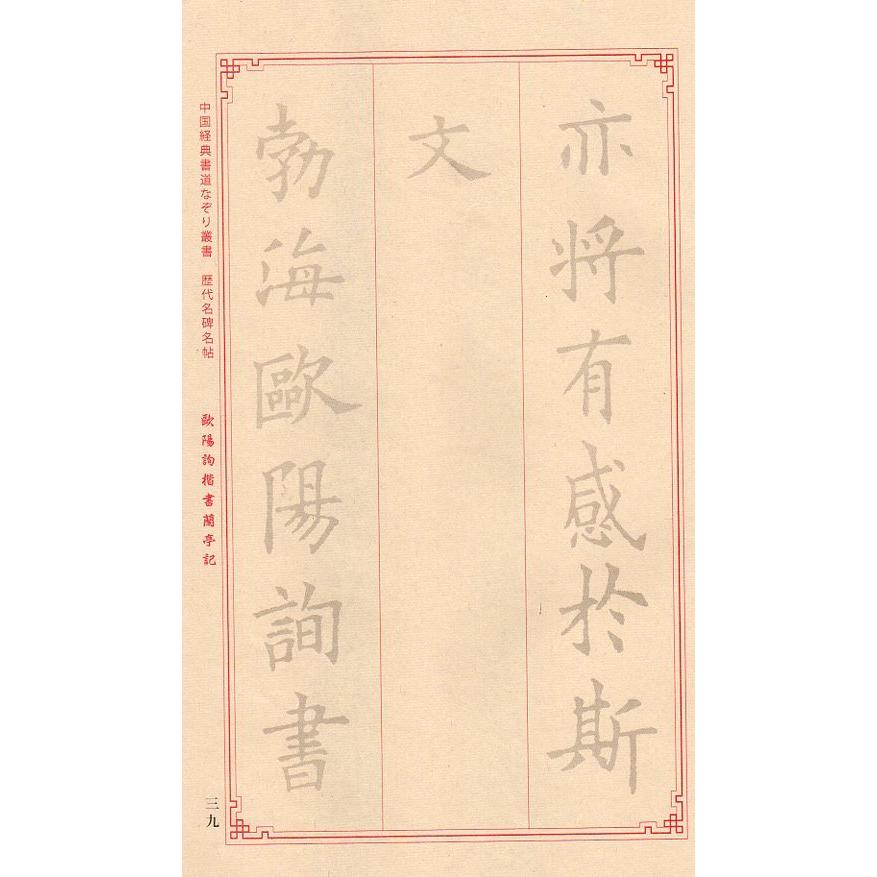 亦將有感於斯
文
勃海歐陽詢書
中国経典書道なぞり叢書　歴代名碑名帖
歐陽詢楷書蘭亭記
三九